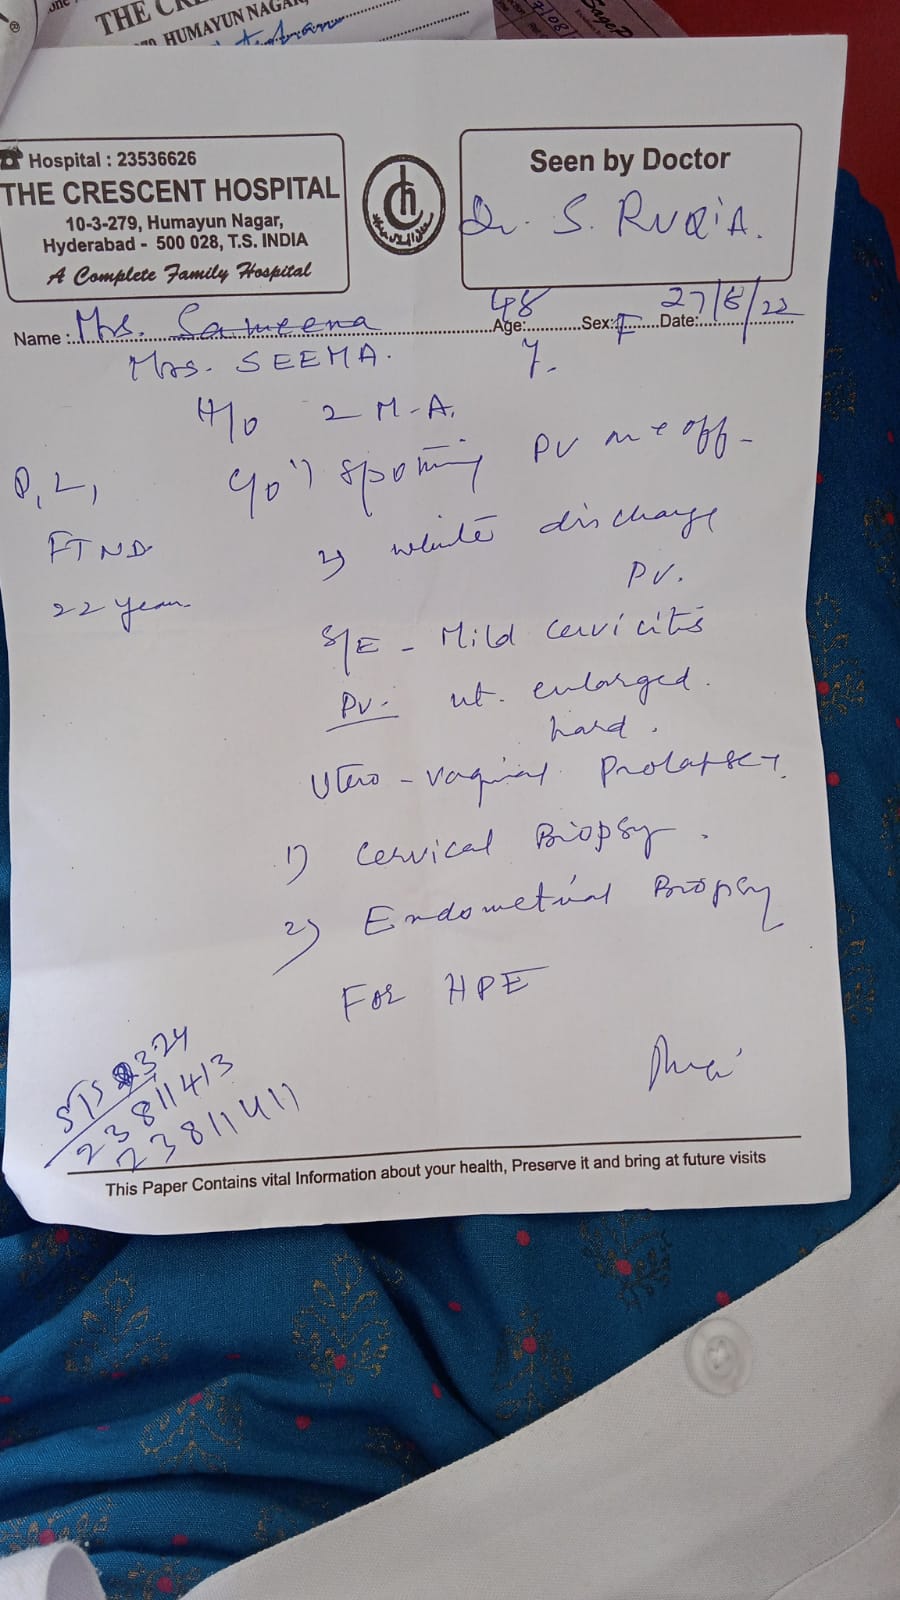 THE CRE
HUMAYUN NAGAR,
Hospital : 23536626
THE CRESCENT HOSPITAL
10-3-279, Humayun Nagar,
Hyderabad - 500 028, T.S. INDIA
A Complete Family Hospital
Seen by Doctor
Dr. S. RUQIA.
Name : Mrs. Sameena Age: 48 Sex: F Date: 27/8/22
Mrs. SEEMA. Y.
H/o 2 M.A.
P1L1 C/o 1) spotting PV on & off -
FTND 2) white discharge
PV.
22 years
S/E - Mild cervicitis
PV. ut. enlarged.
hard.
Utero - vaginal Prolapse
1) Cervical Biopsy.
2) Endometrial Biopsy
For HPE
23811413
23811411
This Paper Contains vital Information about your health, Preserve it and bring at future visits